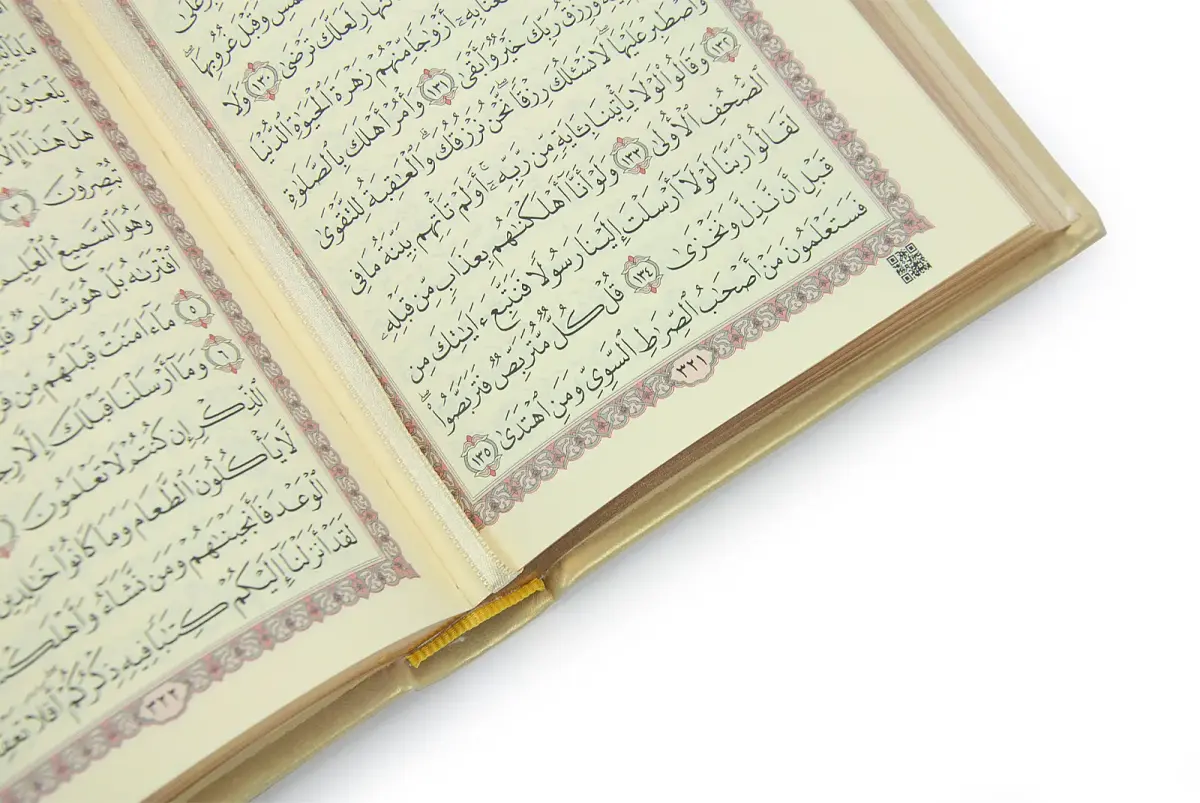 وَقَبْلَ غُرُوبِهَا
ٱلنَّهَارِ لَعَلَّكَ تَرْضَىٰ ١٣٠ وَلَا
أَزْوَٰجًا مِّنْهُمْ زَهْرَةَ ٱلْحَيَوٰةِ ٱلدُّنْيَا
وَرِزْقُ رَبِّكَ خَيْرٌ وَأَبْقَىٰ ١٣١ وَأْمُرْ أَهْلَكَ بِٱلصَّلَوٰةِ
وَٱصْطَبِرْ عَلَيْهَا ۖ لَا نَسْـَٔلُكَ رِزْقًا ۖ نَّحْنُ نَرْزُقُكَ ۗ وَٱلْعَٰقِبَةُ لِلتَّقْوَىٰ
١٣٢ وَقَالُوا۟ لَوْلَا يَأْتِينَا بِـَٔايَةٍ مِّن رَّبِّهِۦٓ ۚ أَوَلَمْ تَأْتِهِم بَيِّنَةُ مَا فِى
ٱلصُّحُفِ ٱلْأُولَىٰ ١٣٣ وَلَوْ أَنَّآ أَهْلَكْنَٰهُم بِعَذَابٍ مِّن قَبْلِهِۦ
لَقَالُوا۟ رَبَّنَا لَوْلَآ أَرْسَلْتَ إِلَيْنَا رَسُولًا فَنَتَّبِعَ ءَايَٰتِكَ مِن
قَبْلِ أَن نَّذِلَّ وَنَخْزَىٰ ١٣٤ قُلْ كُلٌّ مُّتَرَبِّصٌ فَتَرَبَّصُوا۟ ۖ
فَسَتَعْلَمُونَ مَنْ أَصْحَٰبُ ٱلصِّرَٰطِ ٱلسَّوِىِّ وَمَنِ ٱهْتَدَىٰ ١٣٥
٣٢١
يَلْعَبُونَ
هَلْ هَٰذَآ إِلَّا
تُبْصِرُونَ ٣
وَهُوَ ٱلسَّمِيعُ ٱلْعَلِيمُ
ٱفْتَرَىٰهُ بَلْ هُوَ شَاعِرٌ
٥ مَآ ءَامَنَتْ قَبْلَهُم مِّن
٦ وَمَآ أَرْسَلْنَا قَبْلَكَ إِلَّا
ٱلذِّكْرِ إِن كُنتُمْ لَا تَعْلَمُونَ
لَّا يَأْكُلُونَ ٱلطَّعَامَ وَمَا كَانُوا۟ خَٰلِدِينَ
ٱلْوَعْدَ فَأَنجَيْنَٰهُمْ وَمَن نَّشَآءُ
لَقَدْ أَنزَلْنَآ إِلَيْكُمْ كِتَٰبًا فِيهِ ذِكْرُكُمْ ۖ أَفَلَا
٣٢٢